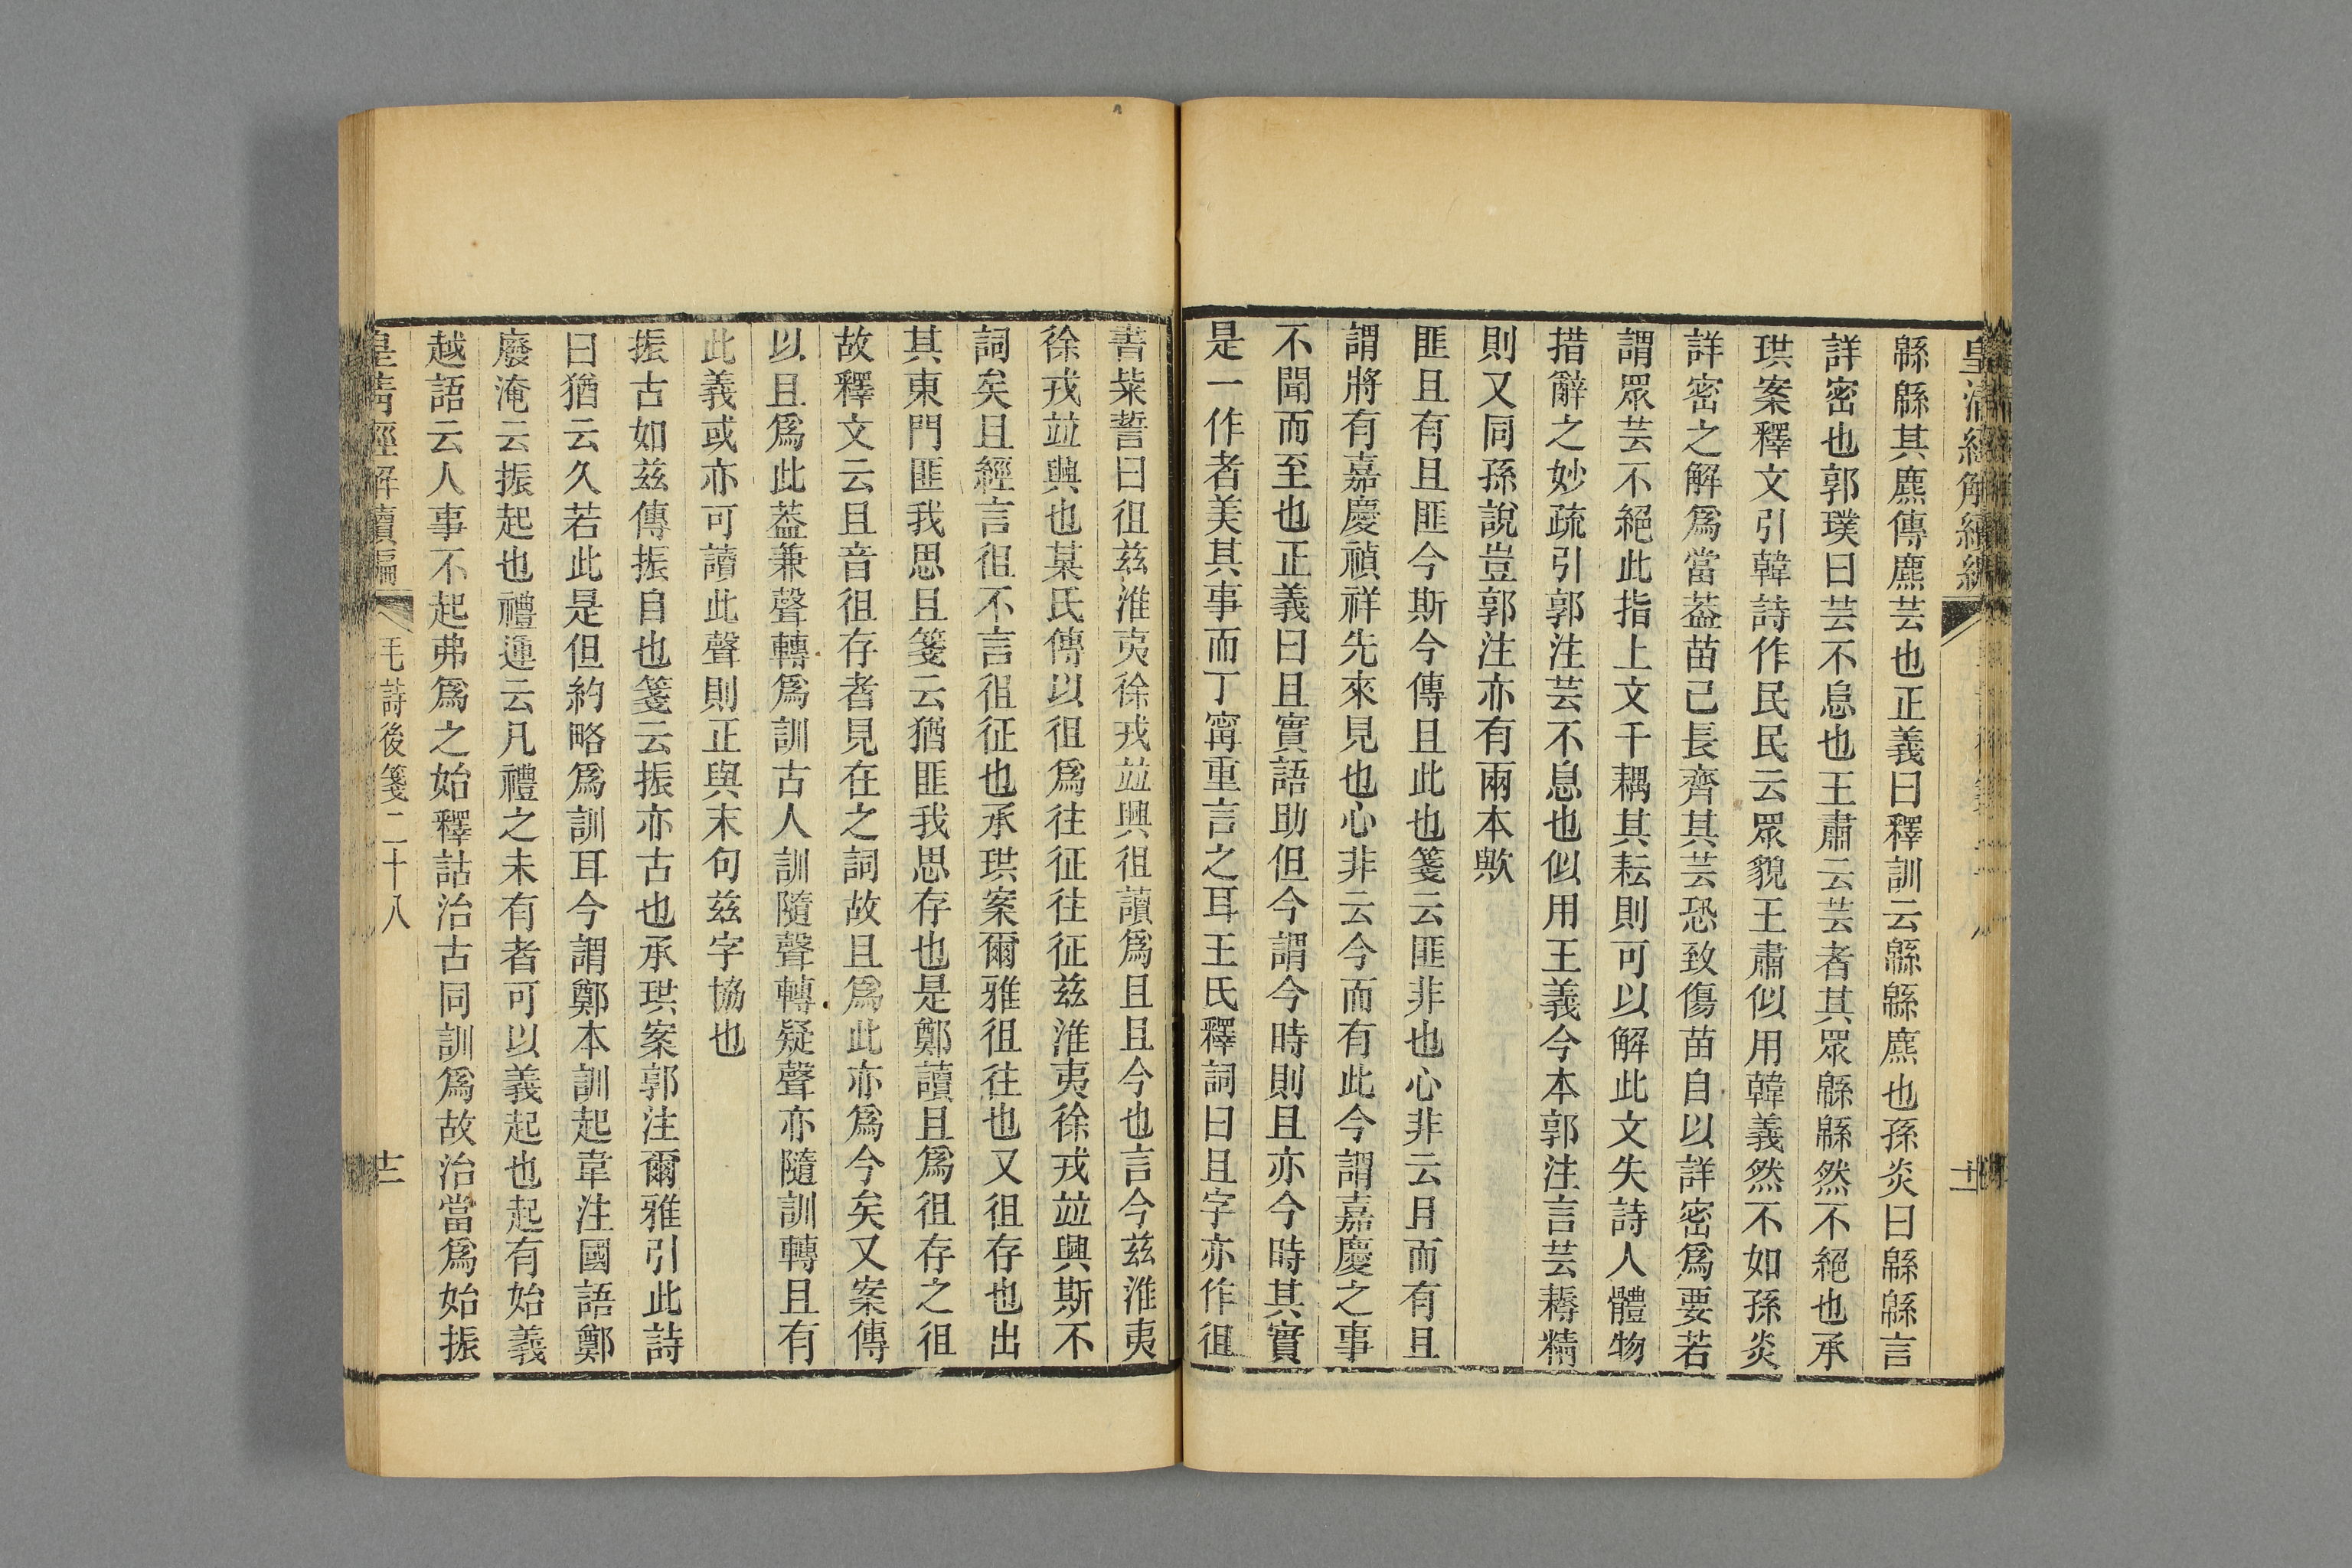 緜緜其麃傳麃芸也正義曰釋訓云緜緜麃也孫炎曰緜緜言
詳密也郭璞曰芸不息也王肅云芸者其眾緜緜然不絕也承
珙案釋文引韓詩作民民云眾貌王肅似用韓義然不如孫炎
詳密之解爲當葢苗已長齊其芸恐致傷苗自以詳密爲要若
謂眾芸不絕此指上文千耦其耘則可以解此文失詩人體物
措辭之妙疏引郭注芸不息也似用王義今本郭注言芸耨精
則又同孫說豈郭注亦有兩本歟
匪且有且匪今斯今傳且此也箋云匪非也心非云且而有且
謂將有嘉慶禎祥先來見也心非云今而有此今謂嘉慶之事
不聞而至也正義曰且實語助但今謂今時則且亦今時其實
是一作者美其事而丁寧重言之耳王氏釋詞曰且字亦作徂
書粊誓曰徂兹淮夷徐戎竝興徂讀爲且且今也言今兹淮夷
徐戎竝興也某氏傳以徂爲往征往征兹淮夷徐戎竝興斯不
詞矣且經言徂不言徂征也承珙案爾雅徂往也又徂存也出
其東門匪我思且箋云猶匪我思存也是鄭讀且爲徂存之徂
故釋文云且音徂存者見在之詞故且爲此亦爲今矣又案傳
以且爲此葢兼聲轉爲訓古人訓隨聲轉疑聲亦隨訓轉且有
此義或亦可讀此聲則正與末句兹字協也
振古如兹傳振自也箋云振亦古也承珙案郭注爾雅引此詩
曰猶云久若此是但約略爲訓耳今謂鄭本訓起韋注國語鄭
廢淹云振起也禮運云凡禮之未有者可以義起也起有始義
越語云人事不起弗爲之始釋詁治古同訓爲故治當爲始振
皇清經解續編 毛詩後箋二十八 十二